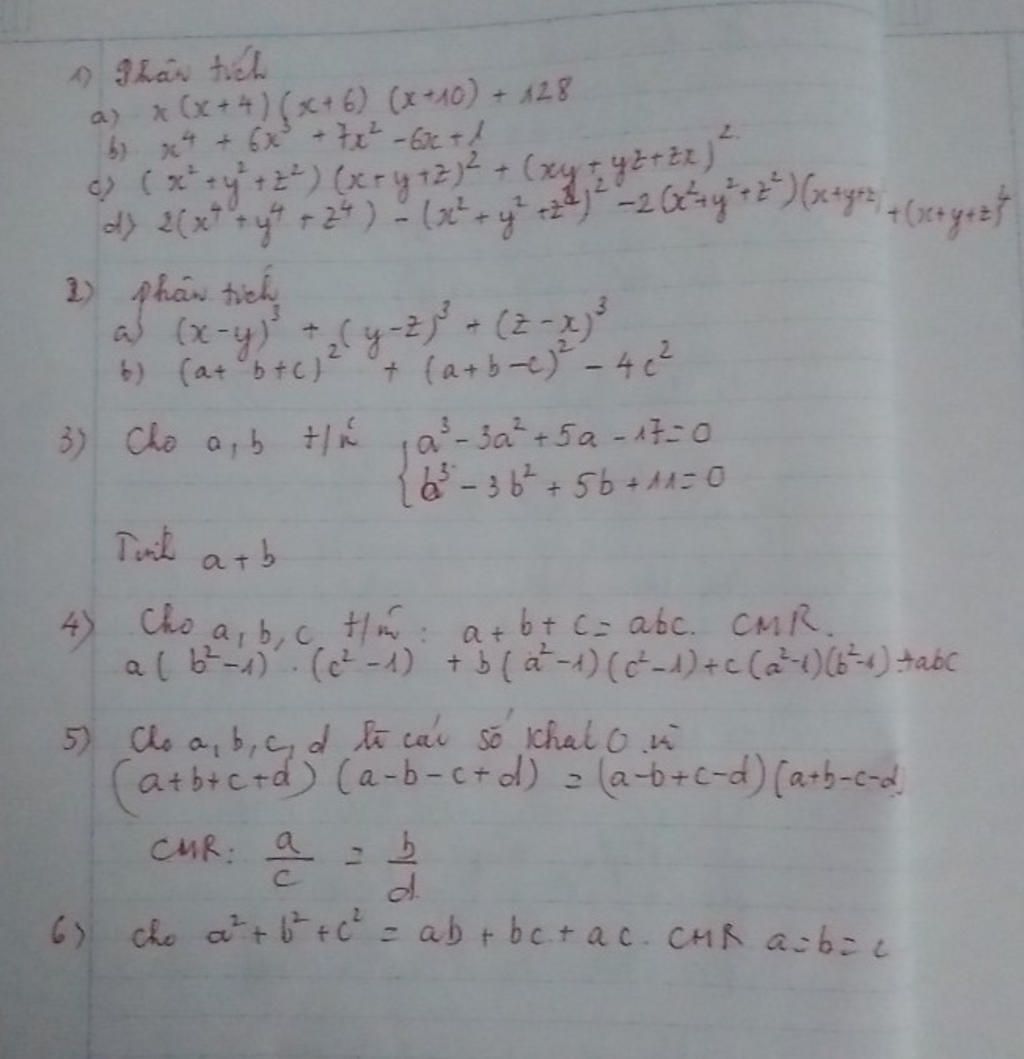 1) Phân tích
a) x(x+4)(x+6)(x+10) + 128
b) x⁴ + 6x³ + 7x² - 6x + 1
c) (x² + y² + z²)(x+y+z)² + (xy + yz + zx)²
d) 2(x⁴ + y⁴ + z⁴) - (x² + y² + z²)² - 2(x² + y² + z²)(x+y+z) + (x+y+z)⁴
2) Phân tích
a) (x-y)³ + (y-z)³ + (z-x)³
b) (a+b+c)² + (a+b-c)² - 4c²
3) Cho a, b t/m { a³ - 3a² + 5a - 17 = 0
b³ - 3b² + 5b + 11 = 0
Tính a + b
4) Cho a, b, c t/m : a + b + c = abc. CMR.
a(b²-1).(c²-1) + b(a²-1)(c²-1) + c(a²-1)(b²-1) = 4abc
5) Cho a, b, c, d là các số khác 0 và
(a+b+c+d)(a-b-c+d) = (a-b+c-d)(a+b-c-d)
CMR: a/c = b/d
6) Cho a² + b² + c² = ab + bc + ac. CMR a = b = c